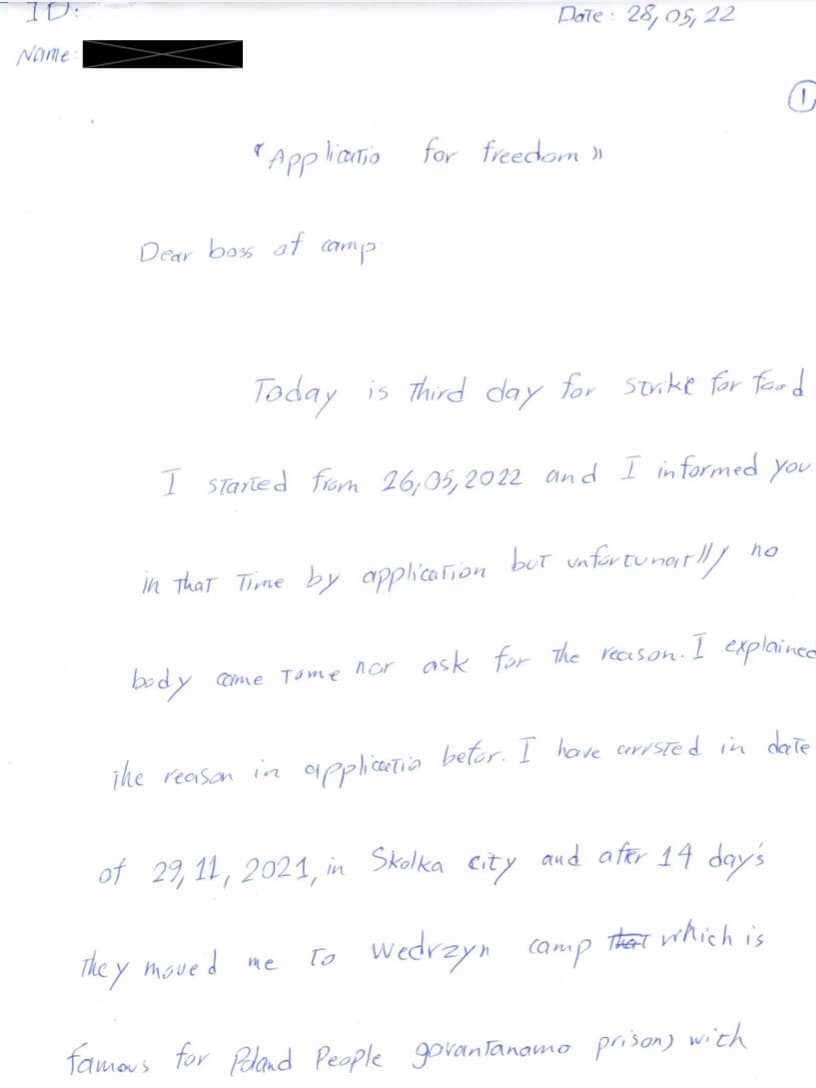 ID:
Date: 28,05,22
Name:
1
"Applicatio for freedom»
Dear boss of camp
Today is Third day for strike for food
I started from 26,05,2022 and I informed you
in that Time by application but unfortunartlly no
body came Tome nor ask for the reason. I explained
The reason in applicatio befor. I have arrsted in date
of 29,11,2021, in Skolka city and after 14 day's
They moved me To Wedrzyn camp That which is
famous for Poland People govantanamo prison) with